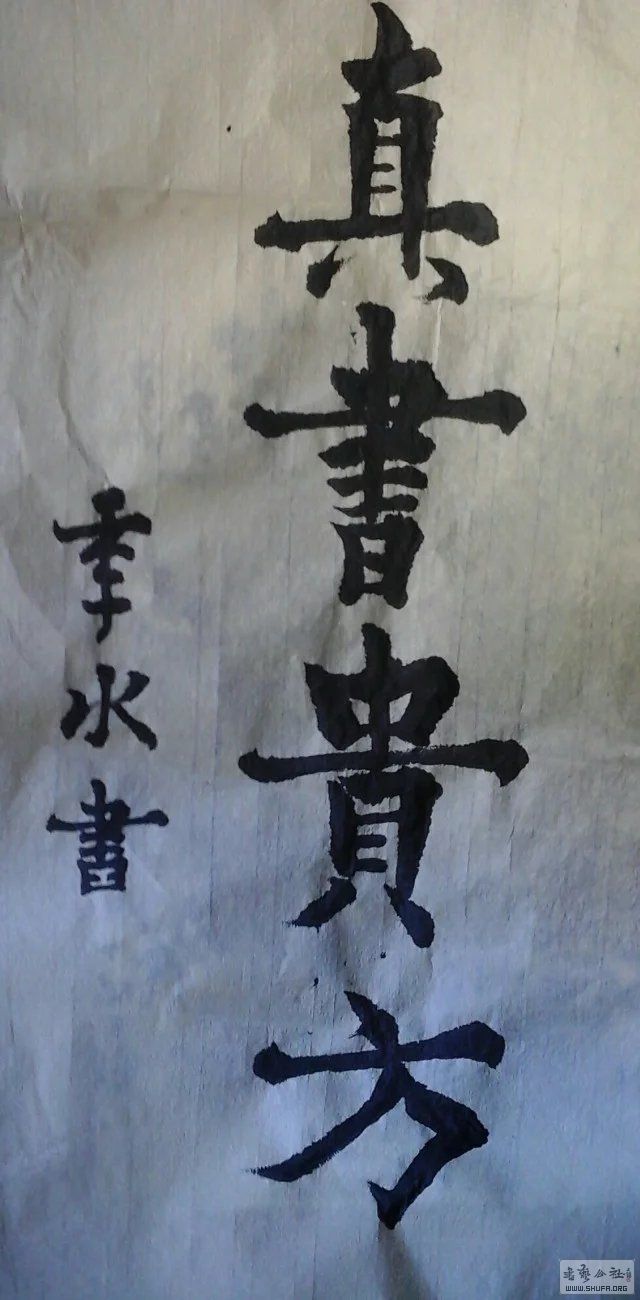 真書貴方
水書
書藝公社
WWW.SHUFA.ORG